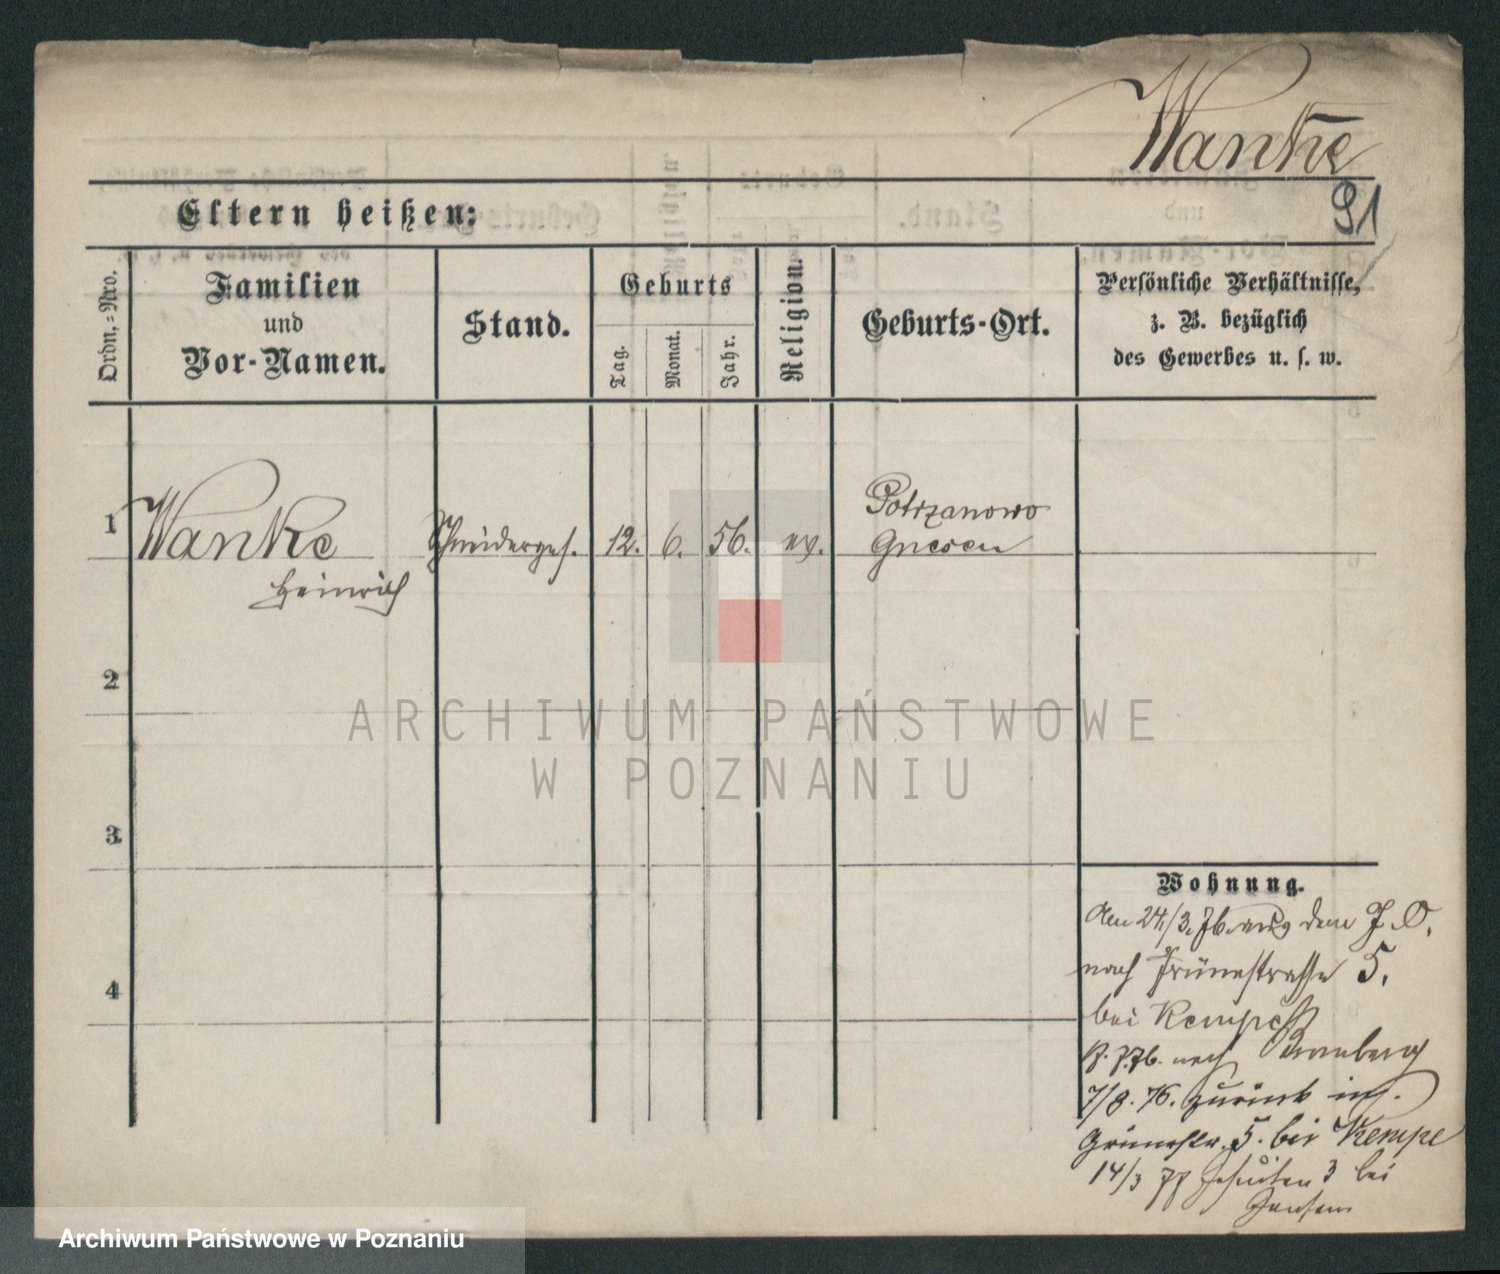 Wanke
91
Eltern heißen:
Ordn.=Nro.
Familien
und
Vor-Namen.
Stand.
Geburts
Tag.
Monat.
Jahr.
Religion.
Geburts-Ort.
Persönliche Verhältnisse,
z. B. bezüglich
des Gewerbes u. s. w.
1
Wanke
Heinrich
Schneiderges.
12.
6.
56.
ev.
Potrzanowo
Gnesen
2
3
4
Wohnung.
den 24/3. 76. aus dem J. O.
nach Grünestrasse 5.
bei Kempe
7.76. nach Bromberg
7/8. 76. zurück
Grünestr. 5. bei Kempe
14/3 77 Jesuiten 3 bei
Jensen
ARCHIWUM PAŃSTWOWE
W POZNANIU
Archiwum Państwowe w Poznaniu